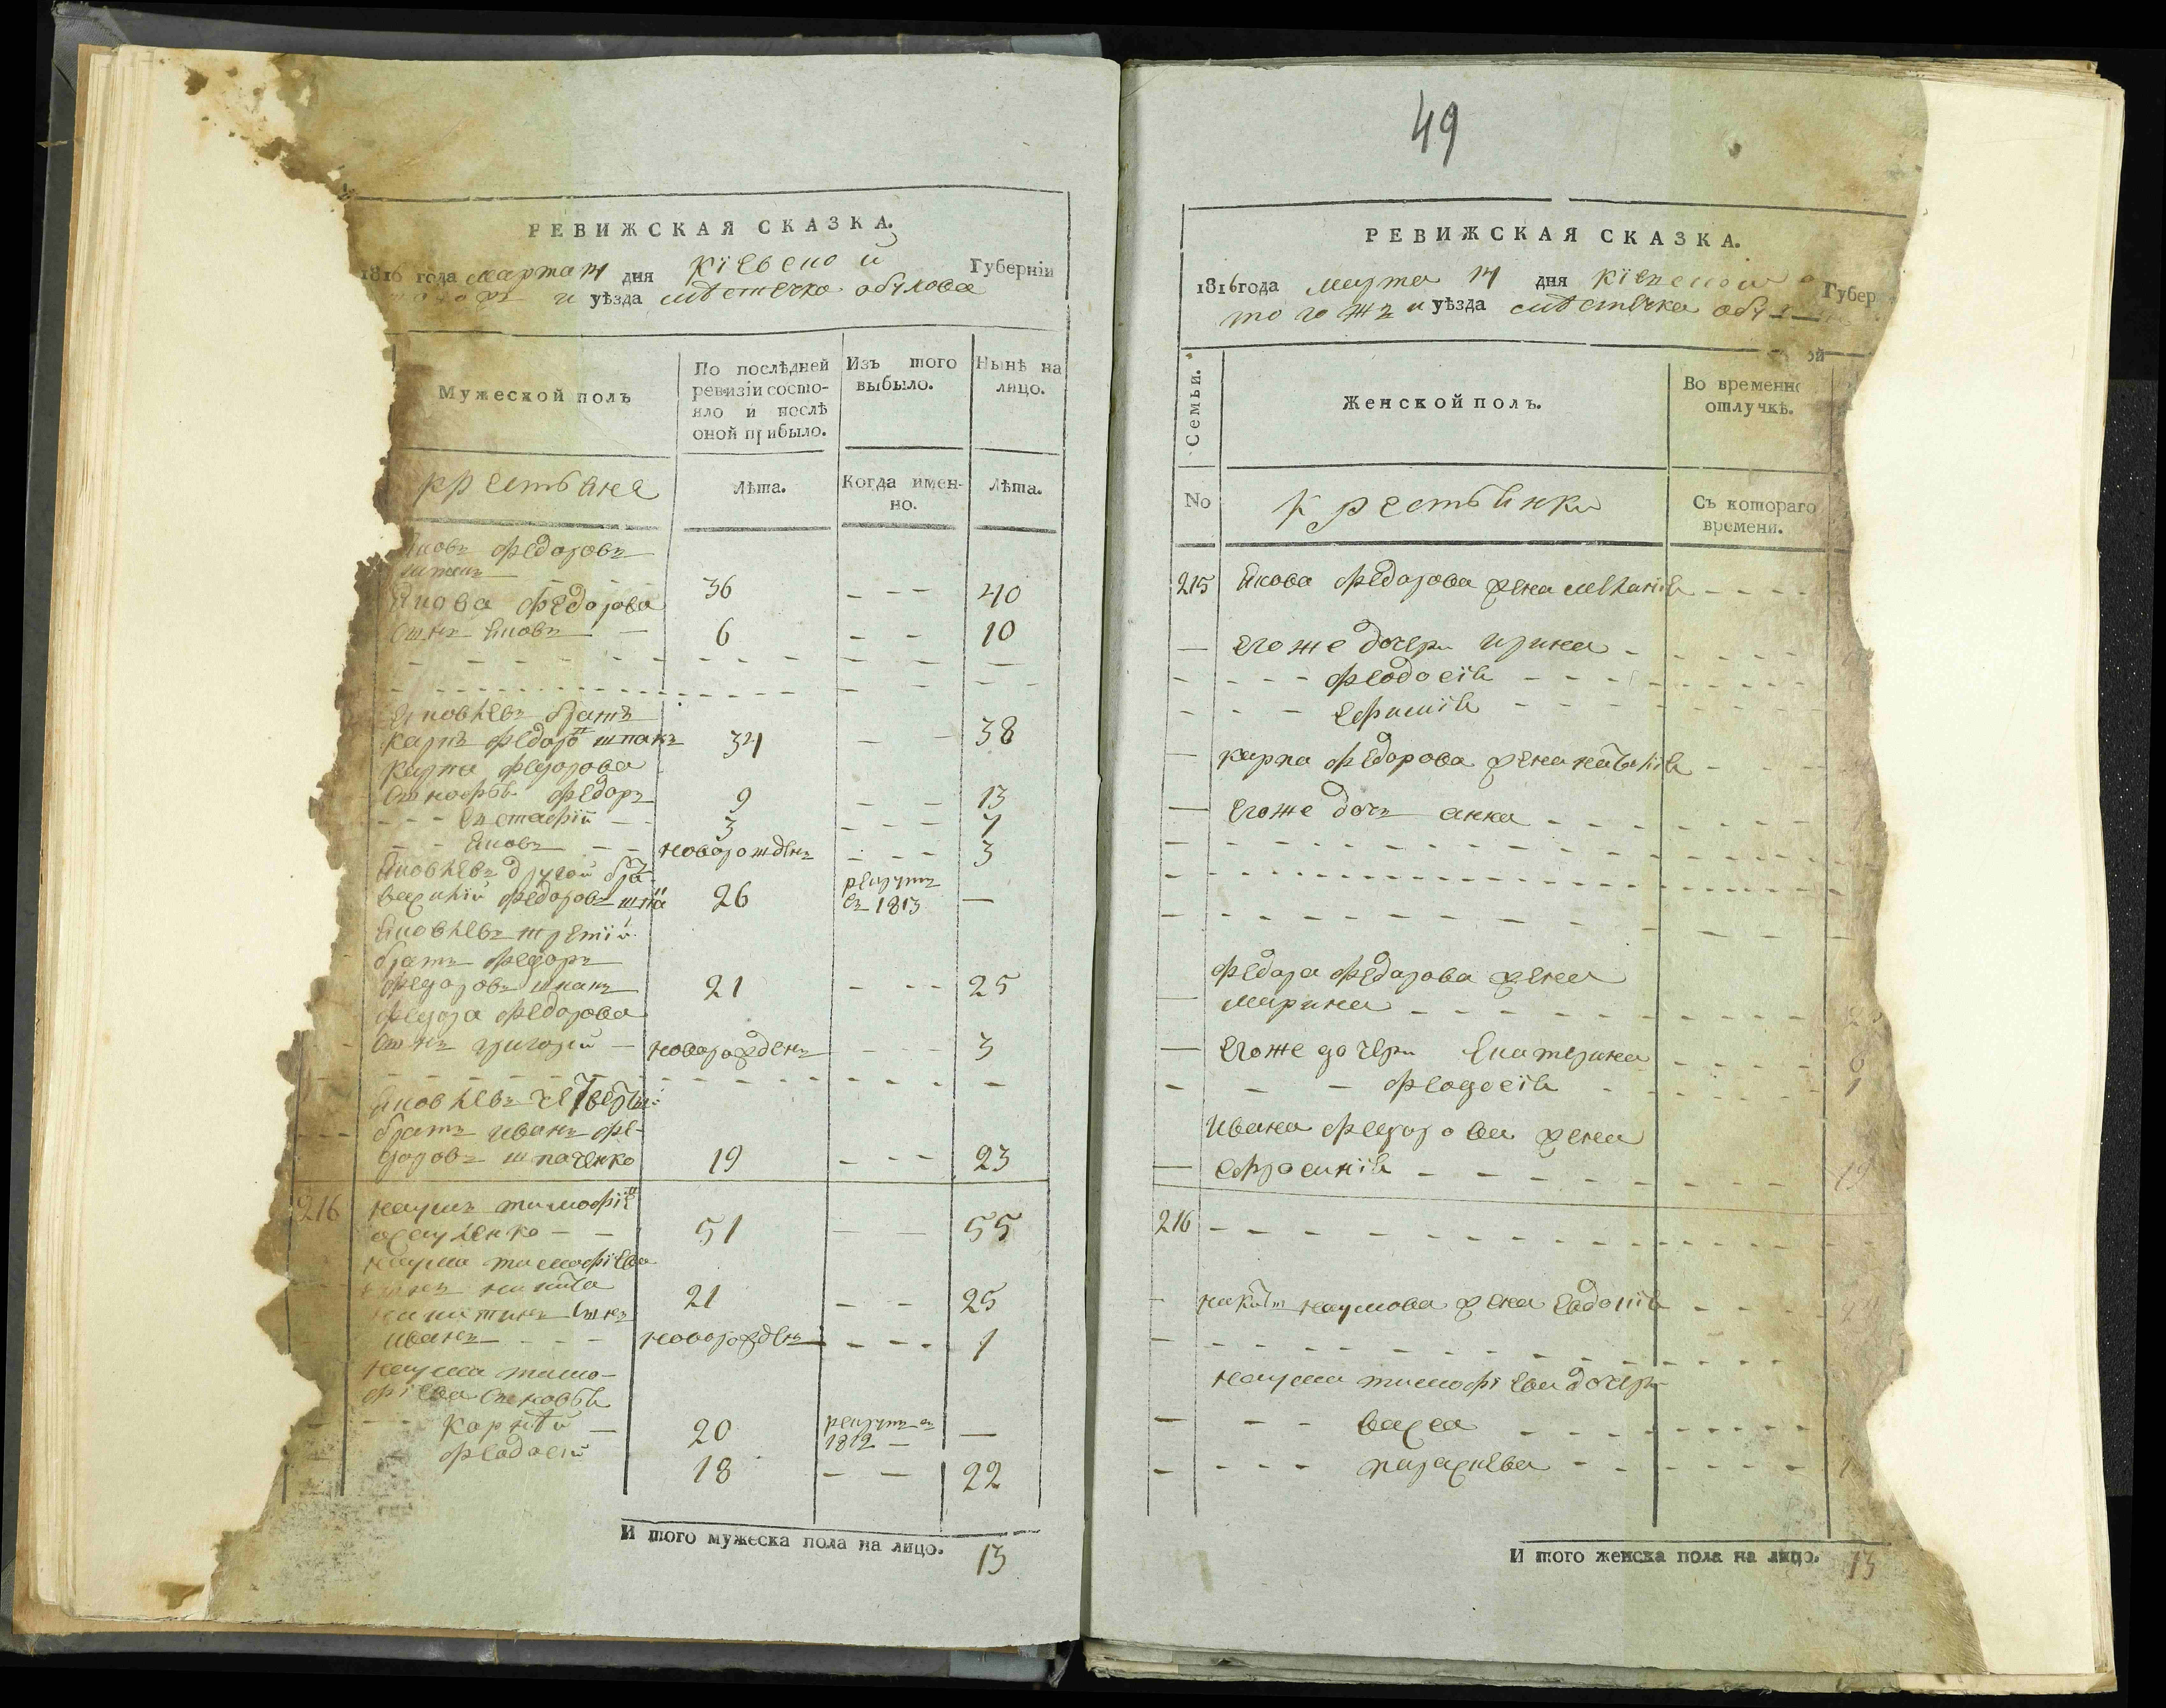 РЕВИЖСКАЯ СКАЗКА.
1816 года марта 14 дня Кіевской Губерніи
и уѣзда мѣстечка обухова
Мужеской полъ
По послѣдней ревизіи состояло и послѣ оной прибыло.
Изъ того выбыло.
Нынѣ на лицо.
крестьяне
Лѣта.
Когда именно.
Лѣта.
Яковъ федоровъ
шпакъ 36 - - - 40
Якова федорова
сынъ Яковъ — 6 - - 10
Яковлевъ братъ
карпъ федоро шпакъ 34 — - 38
карпа федорова
сыновья федоръ 9 - - 13
- - - Евстафій - - 3 - - - 7
- - Яковъ - - новорожденъ - - - 3
Яковлевъ другой бра
василій федоровъ шпа 26 рекрутъ въ 1813 —
Яковлевъ третій
братъ федоръ
федоровъ шпакъ 21 - - - 25
федора федорова
сынъ григорій — новорожденъ - - - 3
Яковлевъ четверты
братъ иванъ фе-
доровъ шпаченко 19 - - - 23
216 наумъ тимофій
- - 51 — — 55
наума тимофіева
сынъ никита 21 - - 25
никитинъ сынъ
иванъ - - - новорожденъ - - - 1
наума тимо-
фіева сыновья
- - корнѣй — 20 рекрутъ въ 1812 — —
феодосій 18 — — 22
И того мужеска пола на лицо. 13
49
РЕВИЖСКАЯ СКАЗКА.
1816 года марта 14 дня Кіевской Губер
того жъ и уѣзда мѣстечка
Семьи.
Женской полъ.
Во временно отлучкѣ.
No
Крестьянки
Съ котораго времени.
215 Якова федорова жена меланія - - - -
— его же дочери ирина - - - - -
- - - - феодосія - - - -
- - - ефимія - - - -
— карпа федорова жена наталія - - -
— его же дочь анна - - - - -
федора федорова жена
— марина - - - - -
— его же дочери Екатерина - - - - 6
- - - феодосія - - - - 1
ивана федорова жена
— ефросинія - - - - - 19
216 - - - - -
- никиты наумова жена Евдокія - - - -
наума тимофіева дочери
— - - васса - - - - -
- - - - параскева - - - - -
И того женска пола на лицо. 13